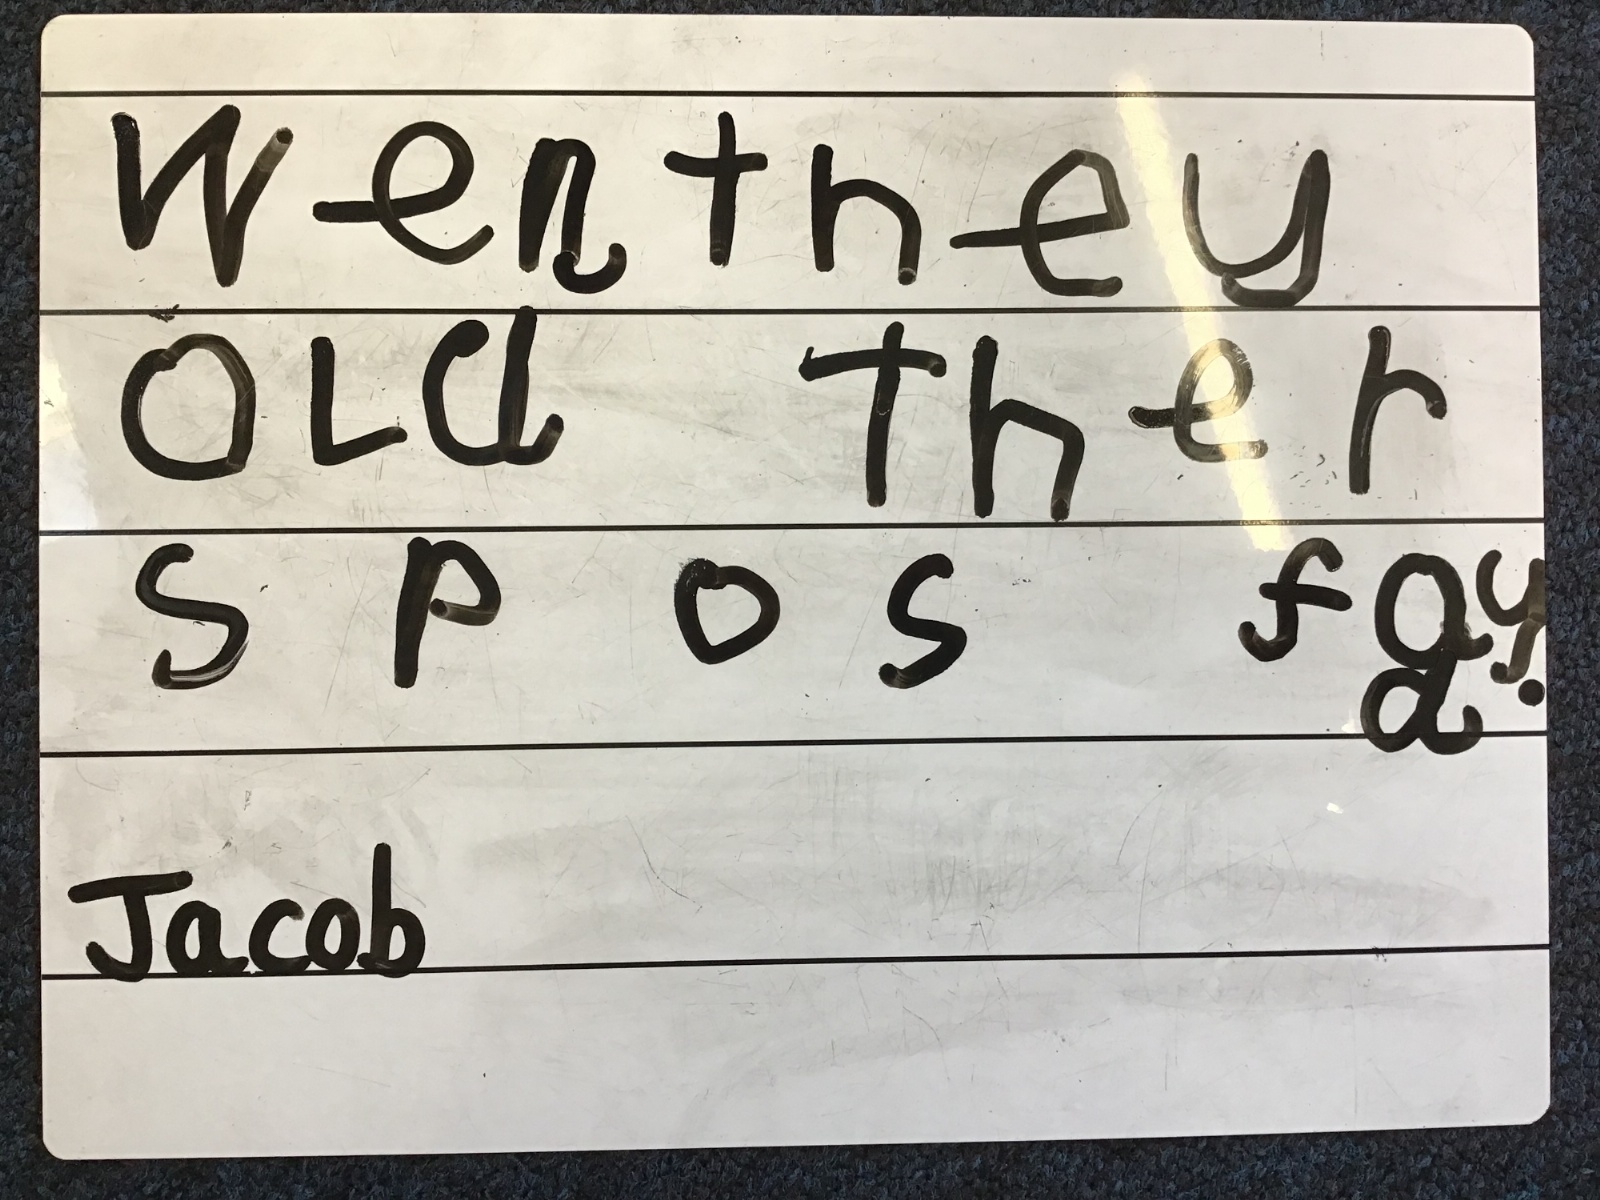 Wen they
OLd Ther
S p o s fay.
a
Jacob